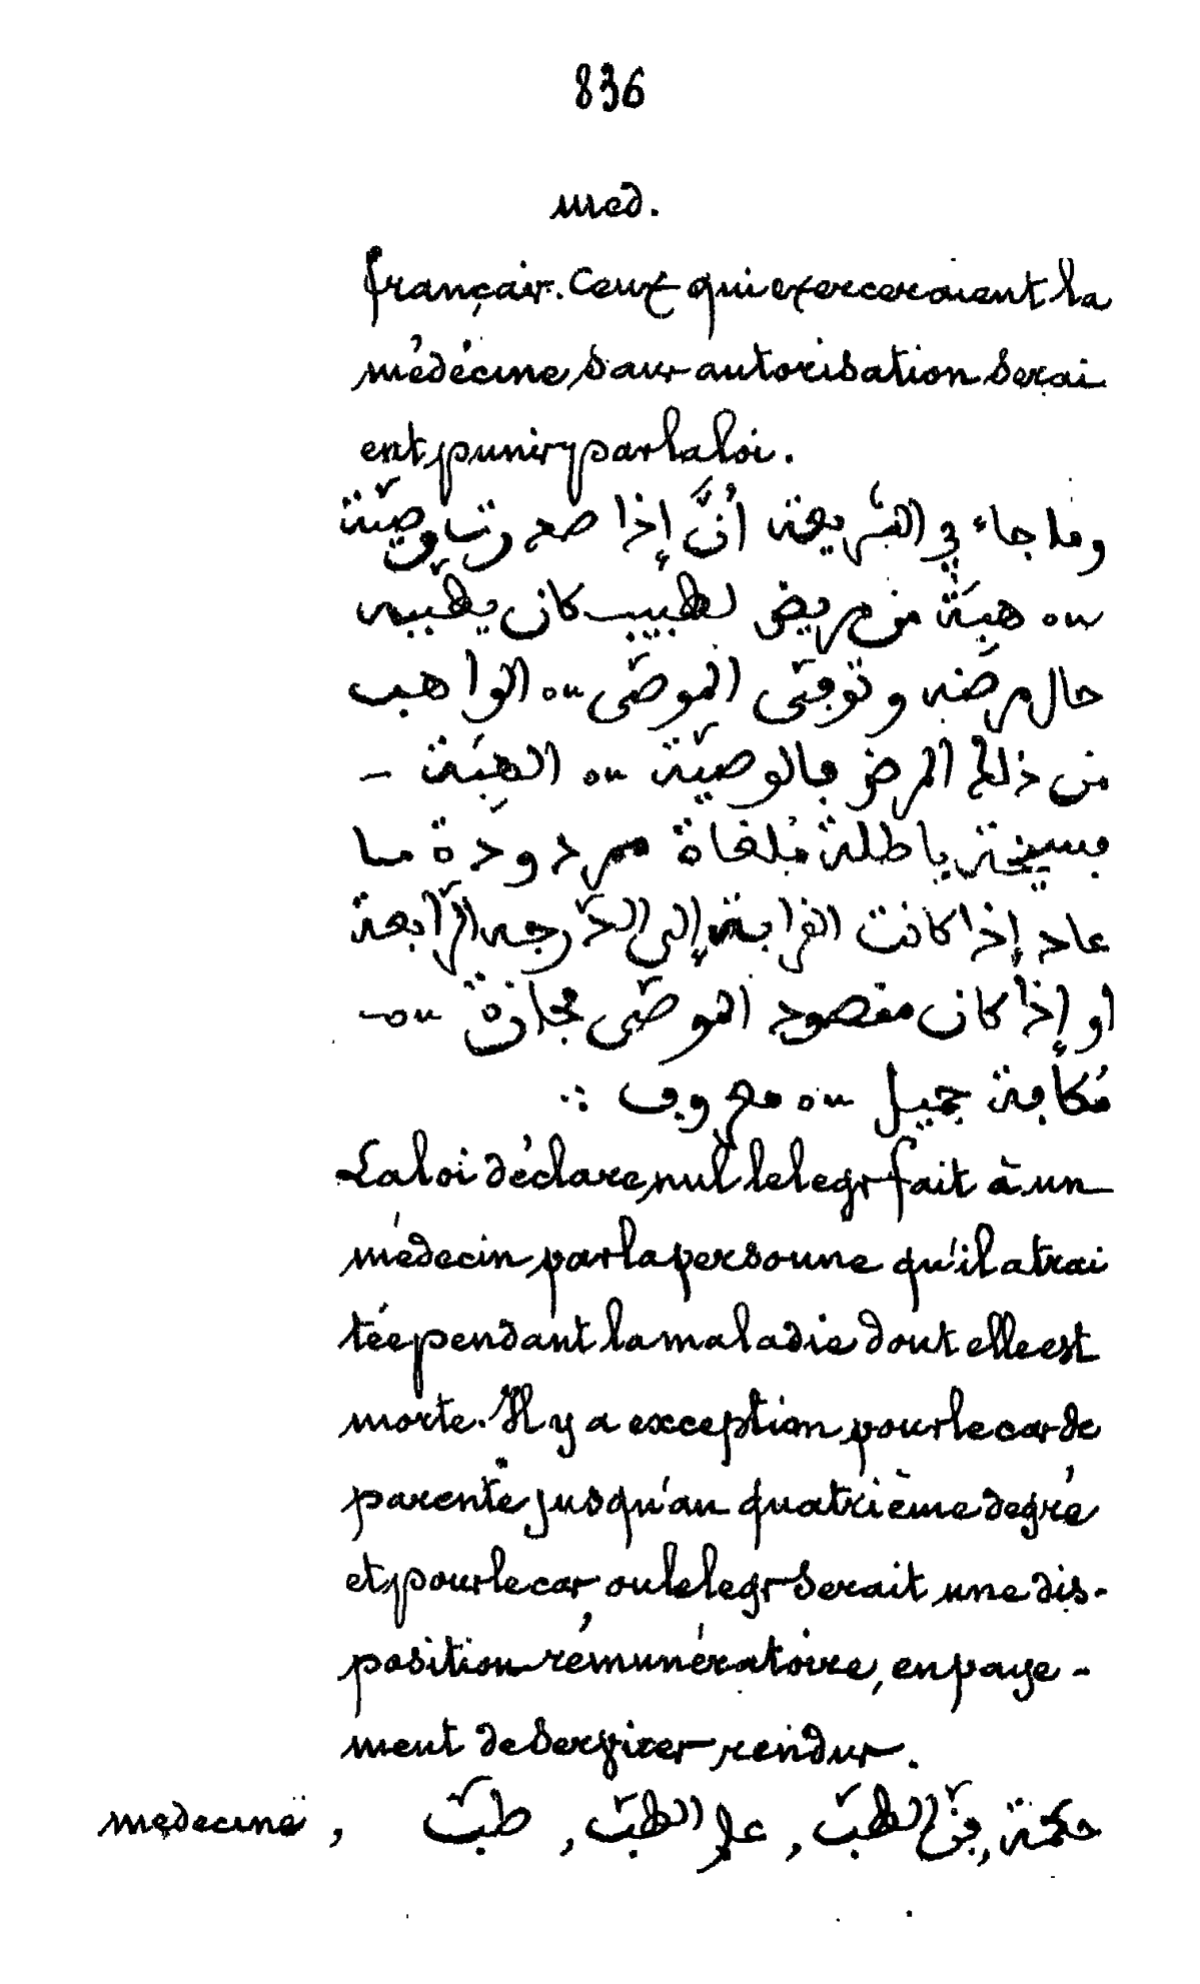 836
med.
français. Ceux qui exerceraient la
médécine, sans autorisation serai
ent punis par la loi.
وما جاء في الشريعة أنّ إذا صدرت وصيّة
ou هبَة من مريض لطبيب كان يطببه
حال مرضه وتوفى الموصّى ou الواهب
من ذلك المرض فالوصيّة ou الهبَة –
فسيخة باطلة مُلغاة مردودة ما
عاد إذا كانت القرابة إلى الدّرجه الرّابعة
او إذا كان مقصود الموصّى مجازة ou –
مُكافة جميل ou معروف :.
La loi déclare nul le legs fait à un
médecin par la personne qu'il a trai
tée pendant la maladie dont elle est
morte. Il y a exception pour le cas de
parenté jusqu'au quatrième degré
et pour le cas ou le legs serait une dis-
position rémunératoire, en paye-
ment de services rendus.
medecine , حكمة, فنّ الطبّ, علم الطبّ, طبّ